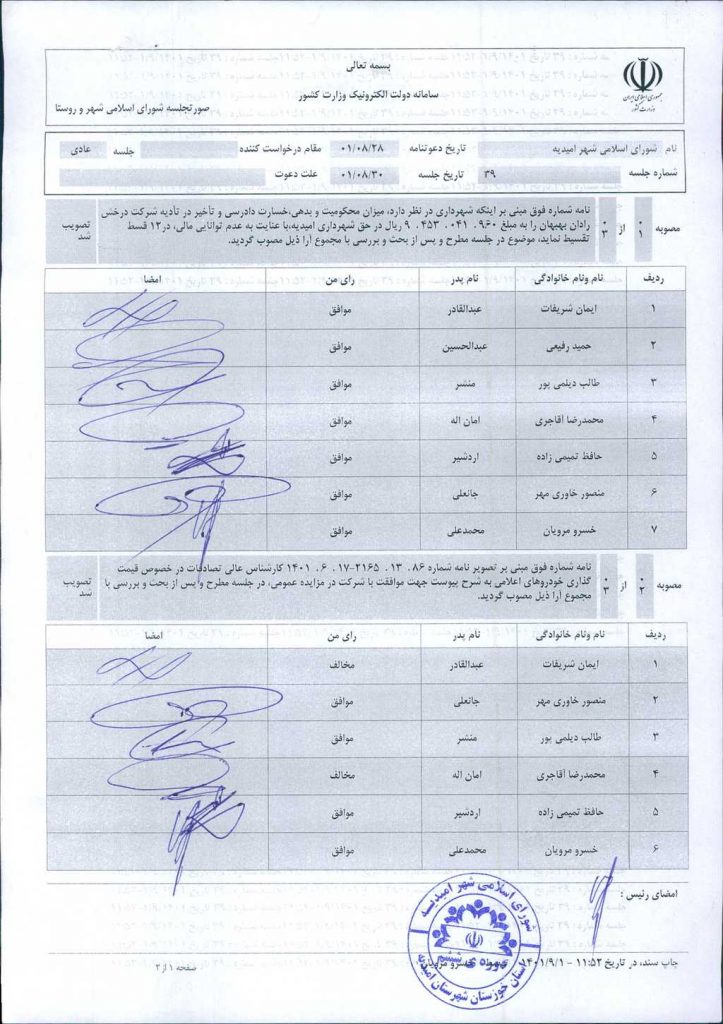 بسمه تعالی
سامانه دولت الکترونیک وزارت کشور
صورتجلسه شورای اسلامی شهر و روستا
جمهوری اسلامی ایران
وزارت کشور
نام شورای اسلامی شهر امیدیه تاریخ دعوتنامه ۰۱/۰۸/۲۸ مقام درخواست کننده جلسه عادی
شماره جلسه ۳۹ تاریخ جلسه ۰۱/۰۸/۳۰ علت دعوت
مصوبه ۰۱ از ۰۳
نامه شماره فوق مبنی بر اینکه شهرداری در نظر دارد، میزان محکومیت و بدهی،خسارت دادرسی و تأخیر در تأدیه شرکت درخش
رادان بهبهان را به مبلغ ۹۶۰. ۰۴۱. ۴۵۳. ۹ ریال در حق شهرداری امیدیه،با عنایت به عدم توانایی مالی، در۱۲ قسط
تقسیط نماید، موضوع در جلسه مطرح و پس از بحث و بررسی با مجموع آرا ذیل مصوب گردید.
تصویب شد
ردیف نام ونام خانوادگی نام پدر رای من امضا
۱ ایمان شریفات عبدالقادر موافق
۲ حمید رفیعی عبدالحسین موافق
۳ طالب دیلمی پور منشر موافق
۴ محمدرضا آقاجری امان اله موافق
۵ حافظ تمیمی زاده اردشیر موافق
۶ منصور خاوری مهر جانعلی موافق
۷ خسرو مرویان محمدعلی موافق
مصوبه ۰۲ از ۰۳
نامه شماره فوق مبنی بر تصویر نامه شماره ۸۶. ۱۳. ۲۱۶۵-۱۷. ۶. ۱۴۰۱ کارشناس عالی تصادفات در خصوص قیمت
گذاری خودروهای اعلامی به شرح پیوست جهت موافقت با شرکت در مزایده عمومی، در جلسه مطرح و پس از بحث و بررسی با
مجموع آرا ذیل مصوب گردید.
تصویب شد
ردیف نام ونام خانوادگی نام پدر رای من امضا
۱ ایمان شریفات عبدالقادر مخالف
۲ منصور خاوری مهر جانعلی موافق
۳ طالب دیلمی پور منشر موافق
۴ محمدرضا آقاجری امان اله مخالف
۵ حافظ تمیمی زاده اردشیر موافق
۶ خسرو مرویان محمدعلی موافق
امضای رئیس :
شورای اسلامی شهر امیدیه
دوره ی ششم
استان خوزستان شهرستان امیدیه
چاپ سند، در تاریخ ۱۱:۵۲ - ۱۴۰۱/۹/۱ توسط خسرو
صفحه ۱ از ۲